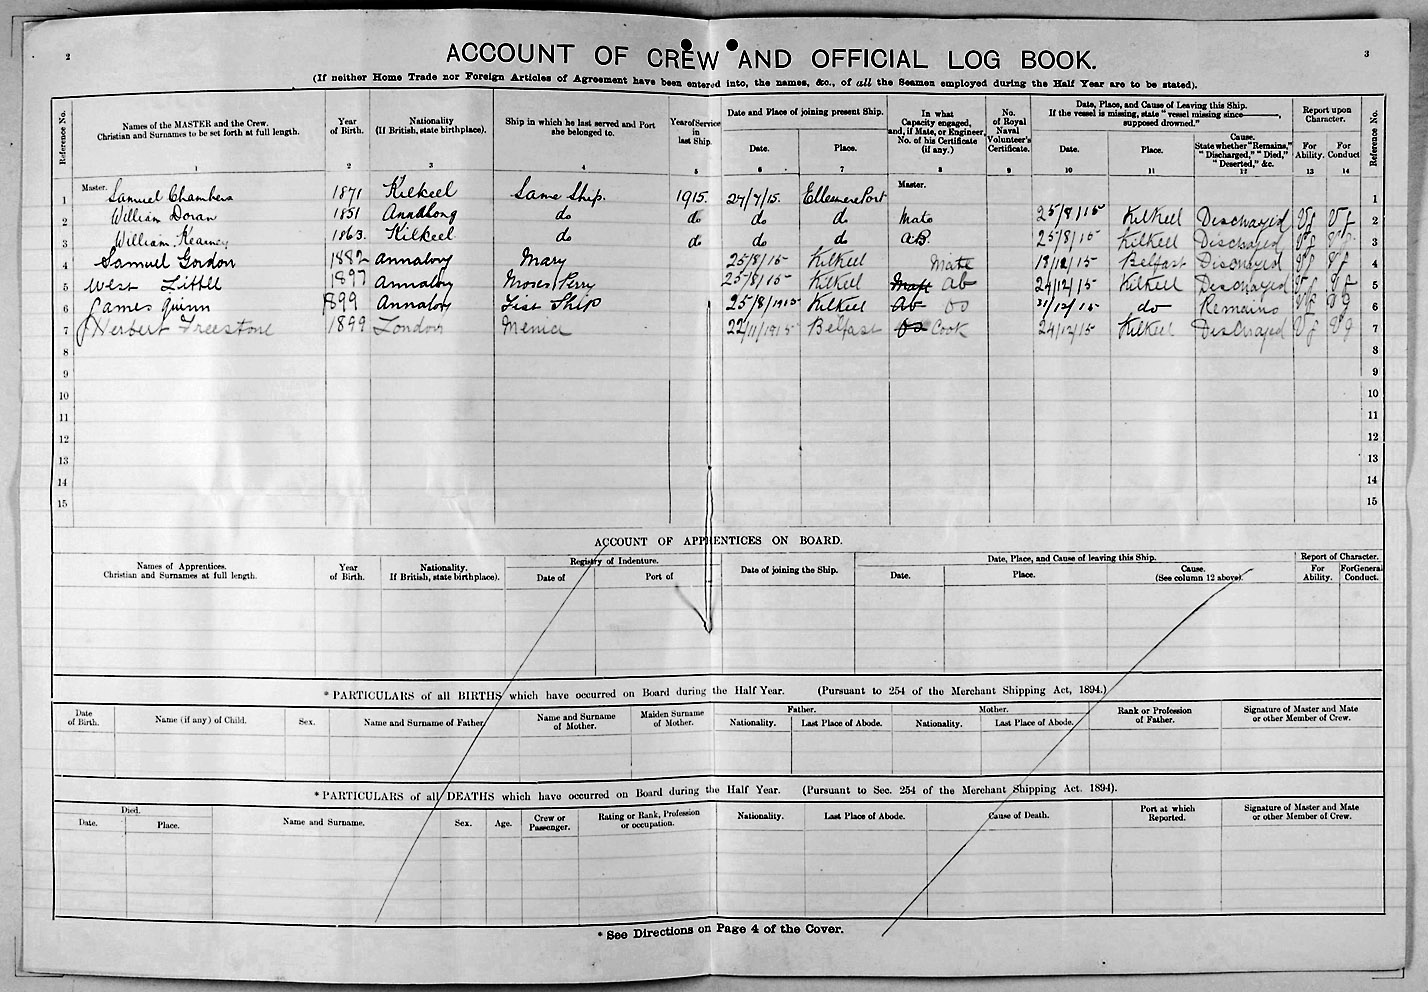 2
3
ACCOUNT OF CREW AND OFFICIAL LOG BOOK.
(If neither Home Trade nor Foreign Articles of Agreement have been entered into, the names, &c., of all the Seamen employed during the Half Year are to be stated).
Reference No. Names of the MASTER and the Crew. Christian and Surnames to be set forth at full length. Year of Birth. Nationality (If British, state birthplace). Ship in which he last served and Port she belonged to. Year of Service in last Ship. Date and Place of joining present Ship. In what Capacity engaged, and, if Mate, or Engineer, No. of his Certificate (if any.) No. of Royal Naval Volunteer's Certificate. Date, Place, and Cause of Leaving this Ship. If the vessel is missing, state "vessel missing since———, supposed drowned." Report upon Character. Reference No.
Date. Place. Date. Place. Cause. State whether "Remains," "Discharged," "Died," "Deserted," &c. For Ability. For Conduct
1 2 3 4 5 6 7 8 9 10 11 12 13 14
1 Master. Samuel Chambers 1871 Kilkeel Same Ship. 1915. 24/7/15. Ellesmere Port Master. 1
2 William Doran 1851 Annalong do do do do Mate 25/8/15 Kilkeel Discharged Vg Vg 2
3 William Kearney 1863. Kilkeel do do do do A.B. 25/8/15 Kilkeel Discharged Vg Vg 3
4 Samuel Gordon 1882 Annalong Mary 25/8/15 Kilkeel Mate 18/12/15 Belfast Discharged Vg Vg 4
5 West Littll 1897 Annalong Moses Perry 25/8/15 Kilkeel Mate AB 24/12/15 Kilkeel Discharged Vg Vg 5
6 James Quinn 1899 Annalong First Ship 25/8/1915 Kilkeel AB OS 31/12/15 do Remains Vg Vg 6
7 Herbert Freestone 1899 London Menia 22/11/1915 Belfast OS Cook 24/12/15 Kilkeel Discharged Vg Vg 7
8 8
9 9
10 10
11 11
12 12
13 13
14 14
15 15
ACCOUNT OF APPRENTICES ON BOARD.
Names of Apprentices. Christian and Surnames at full length. Year of Birth. Nationality. If British, state birthplace). Registry of Indenture. Date of joining the Ship. Date, Place, and Cause of leaving this Ship. Report of Character.
Date of Port of Date. Place. Cause. (See column 12 above). For Ability. For General Conduct.
*PARTICULARS of all BIRTHS which have occurred on Board during the Half Year. (Pursuant to 254 of the Merchant Shipping Act, 1894.)
Date of Birth. Name (if any) of Child. Sex. Name and Surname of Father. Name and Surname of Mother. Maiden Surname of Mother. Father. Mother. Rank or Profession of Father. Signature of Master and Mate or other Member of Crew.
Nationality. Last Place of Abode. Nationality. Last Place of Abode.
*PARTICULARS of all DEATHS which have occurred on Board during the Half Year. (Pursuant to Sec. 254 of the Merchant Shipping Act. 1894).
Died. Name and Surname. Sex. Age. Crew or Passenger. Rating or Rank, Profession or occupation. Nationality. Last Place of Abode. Cause of Death. Port at which Reported. Signature of Master and Mate or other Member of Crew.
Date. Place.
* See Directions on Page 4 of the Cover.